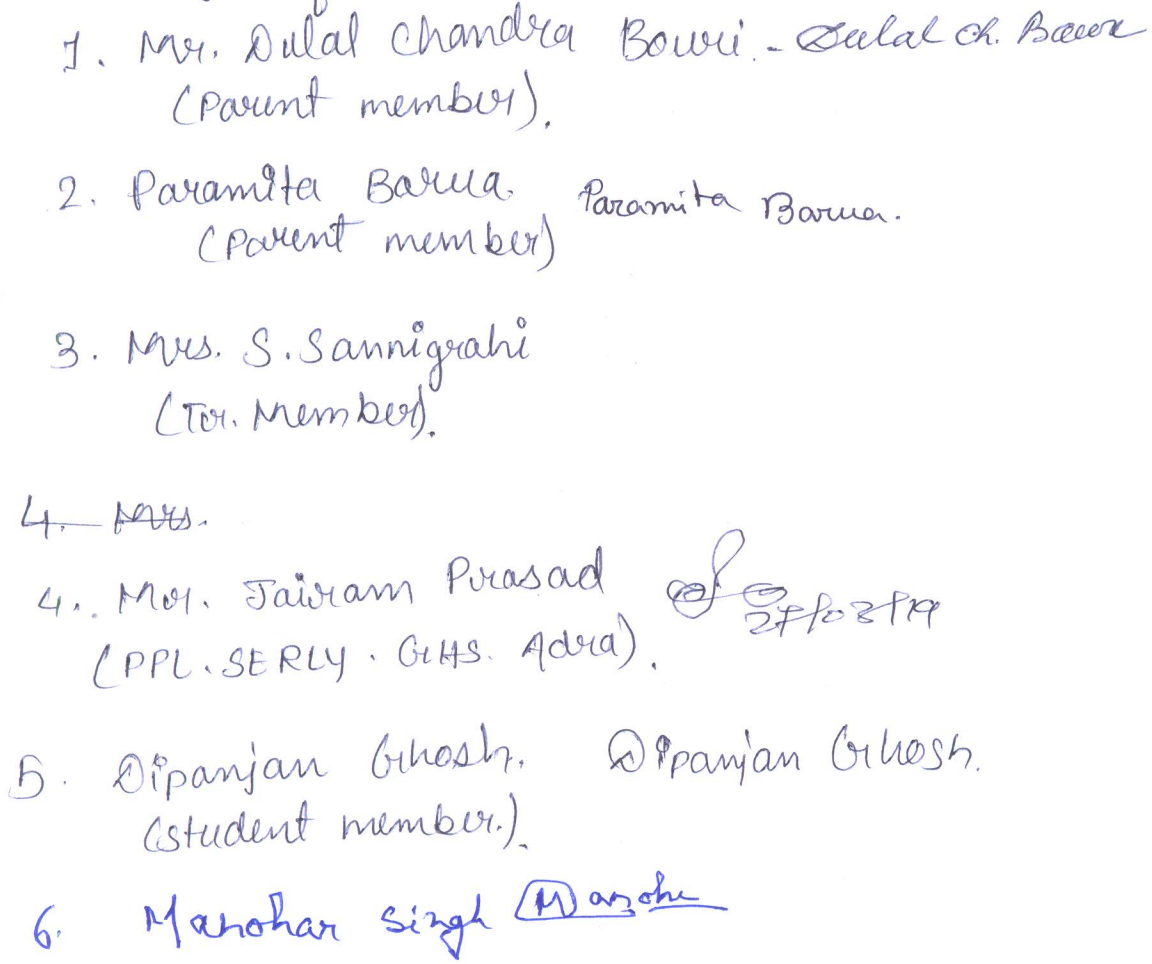 1. Mr. Dulal Chandra Bowri - Dulal Ch. Bauri
(Parent member).
2. Paramita Barua. Paramita Barua.
(Parent member)
3. Mrs. S. Sannigrahi
(Tr. Member).
4. Mrs.
4. Mr. Jairam Prasad 27/03/19
(PPL. SERLY. GHS. Adra).
5. Dipanjan Ghosh. Dipanjan Ghosh.
(student member.).
6. Manohar Singh Manohar